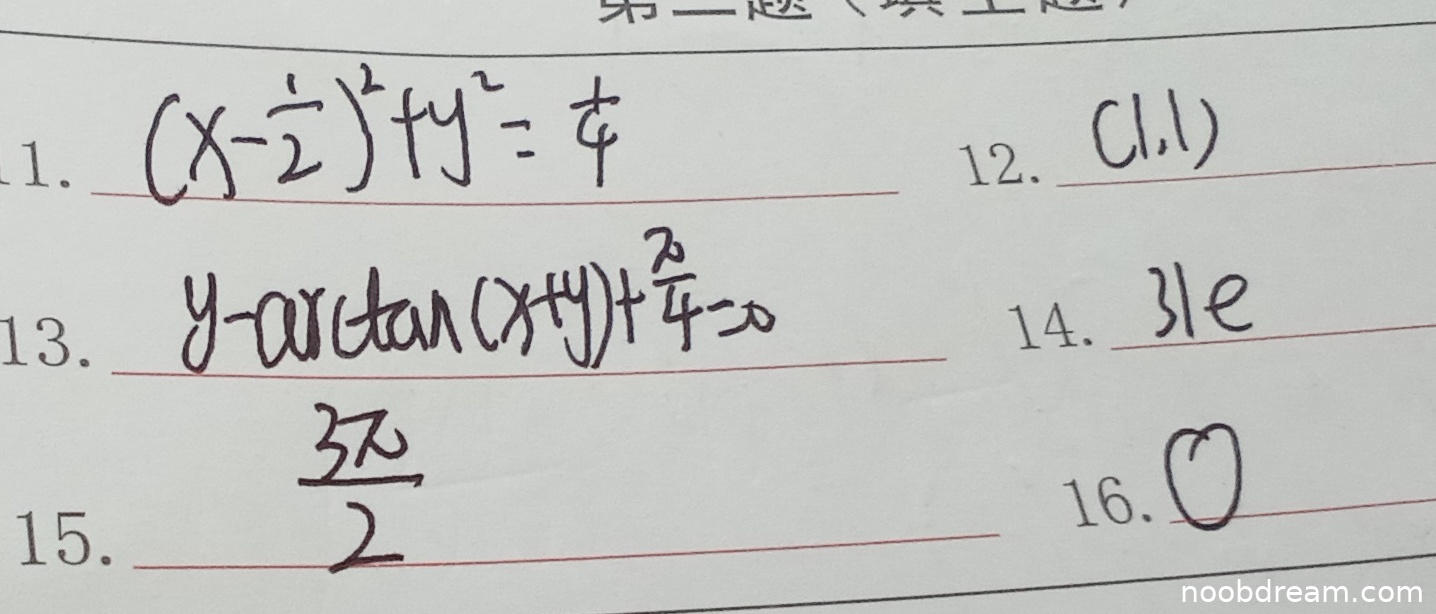 第二题（填空题）
11. (x-1/2)²+y²=1/4 12. (1,1)
13. y-arctan(x+y)+π/4=0 14. 31e
15. 3π/2 16. 0
noobdream.com